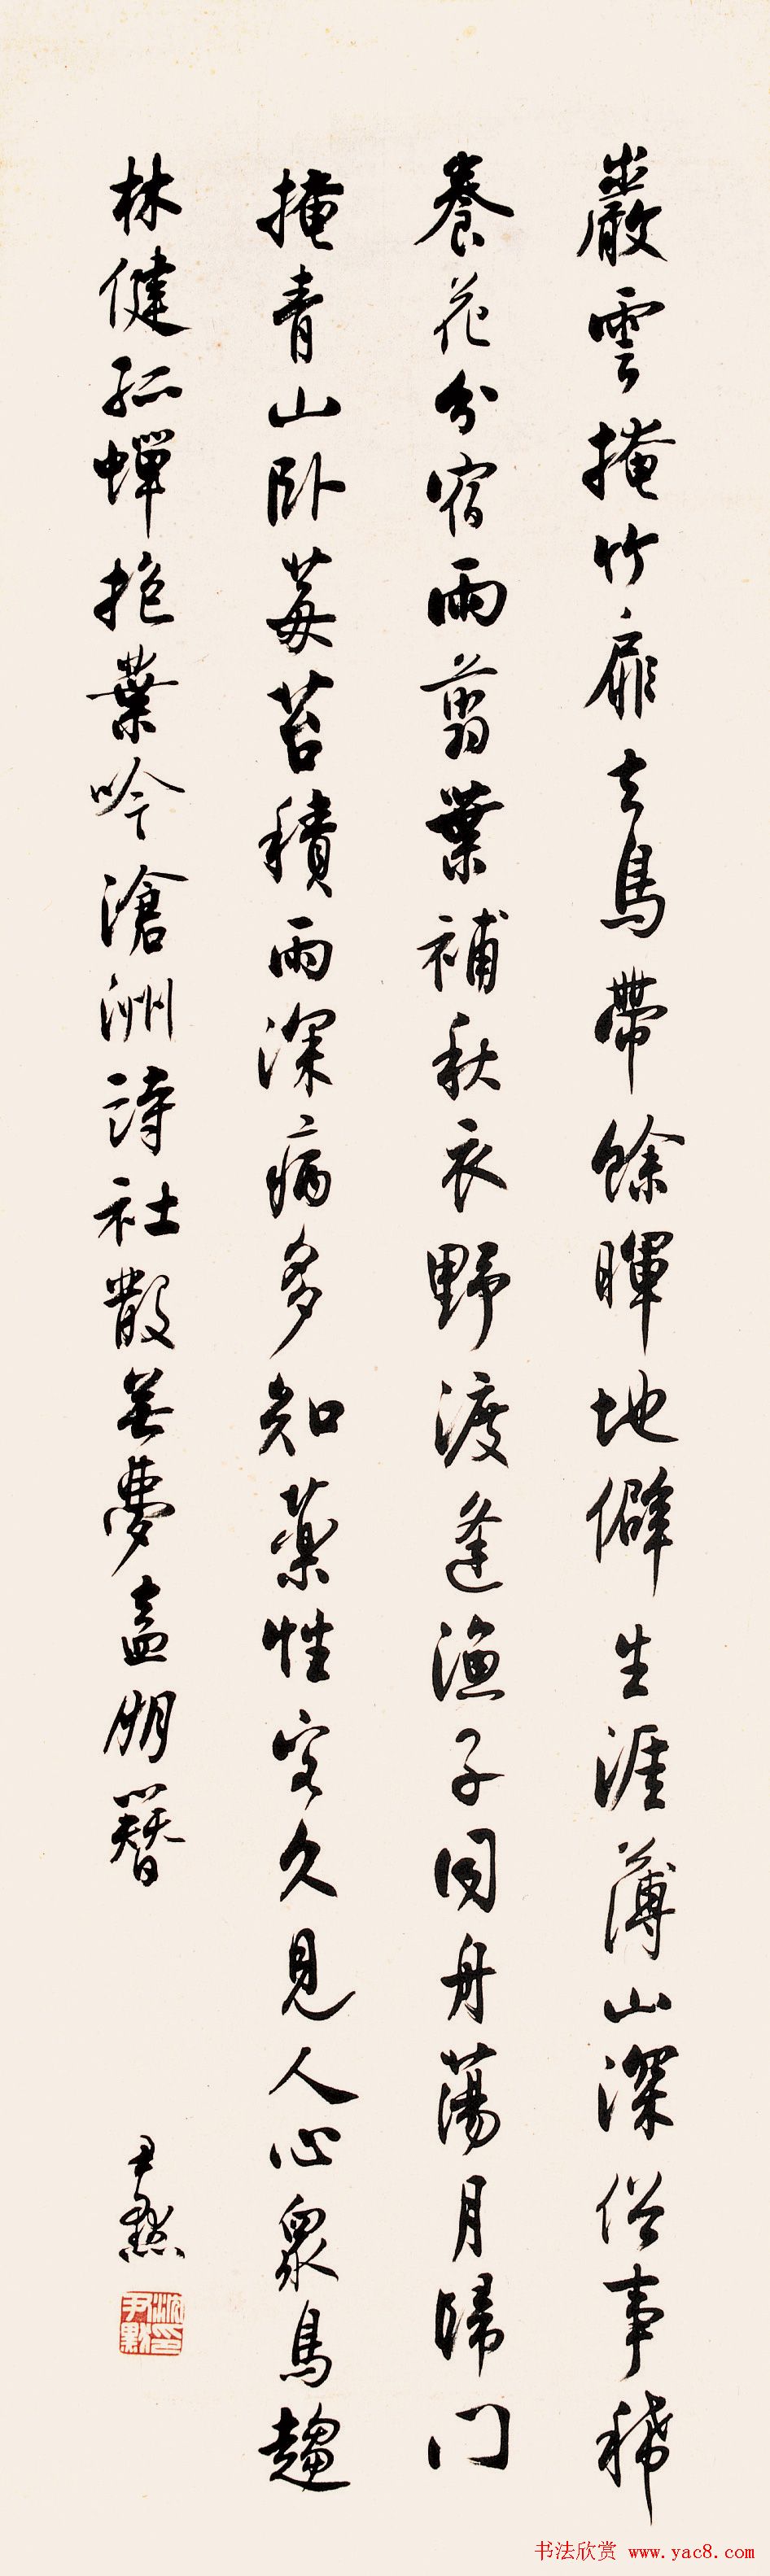 巖雲掩竹扉去鳥帶餘暉地僻生涯薄山深俗事稀
養花分宿雨翦葉補秋衣野渡逢漁子同舟蕩月歸门
掩青山卧莓苔積雨深病多知藥性客久見人心衆鳥趨
林健孤蟬抱葉吟滄洲詩社散無夢盍朋簪
尹默
沈尹默印
书法欣赏 www.yac8.com